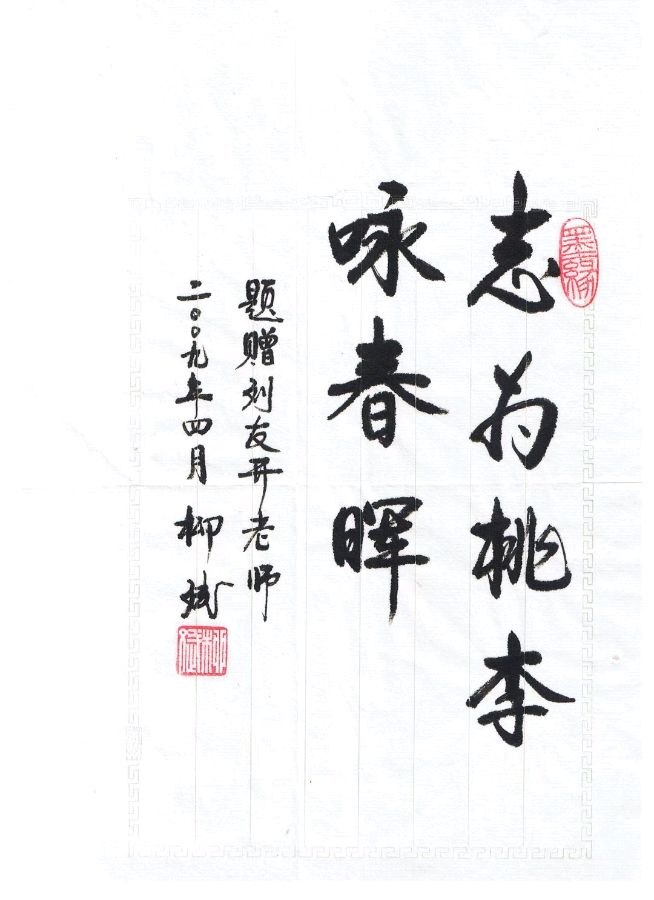 志为桃李
咏春晖
题赠刘友开老师
二〇〇九年四月 柳斌
墨缘
柳斌